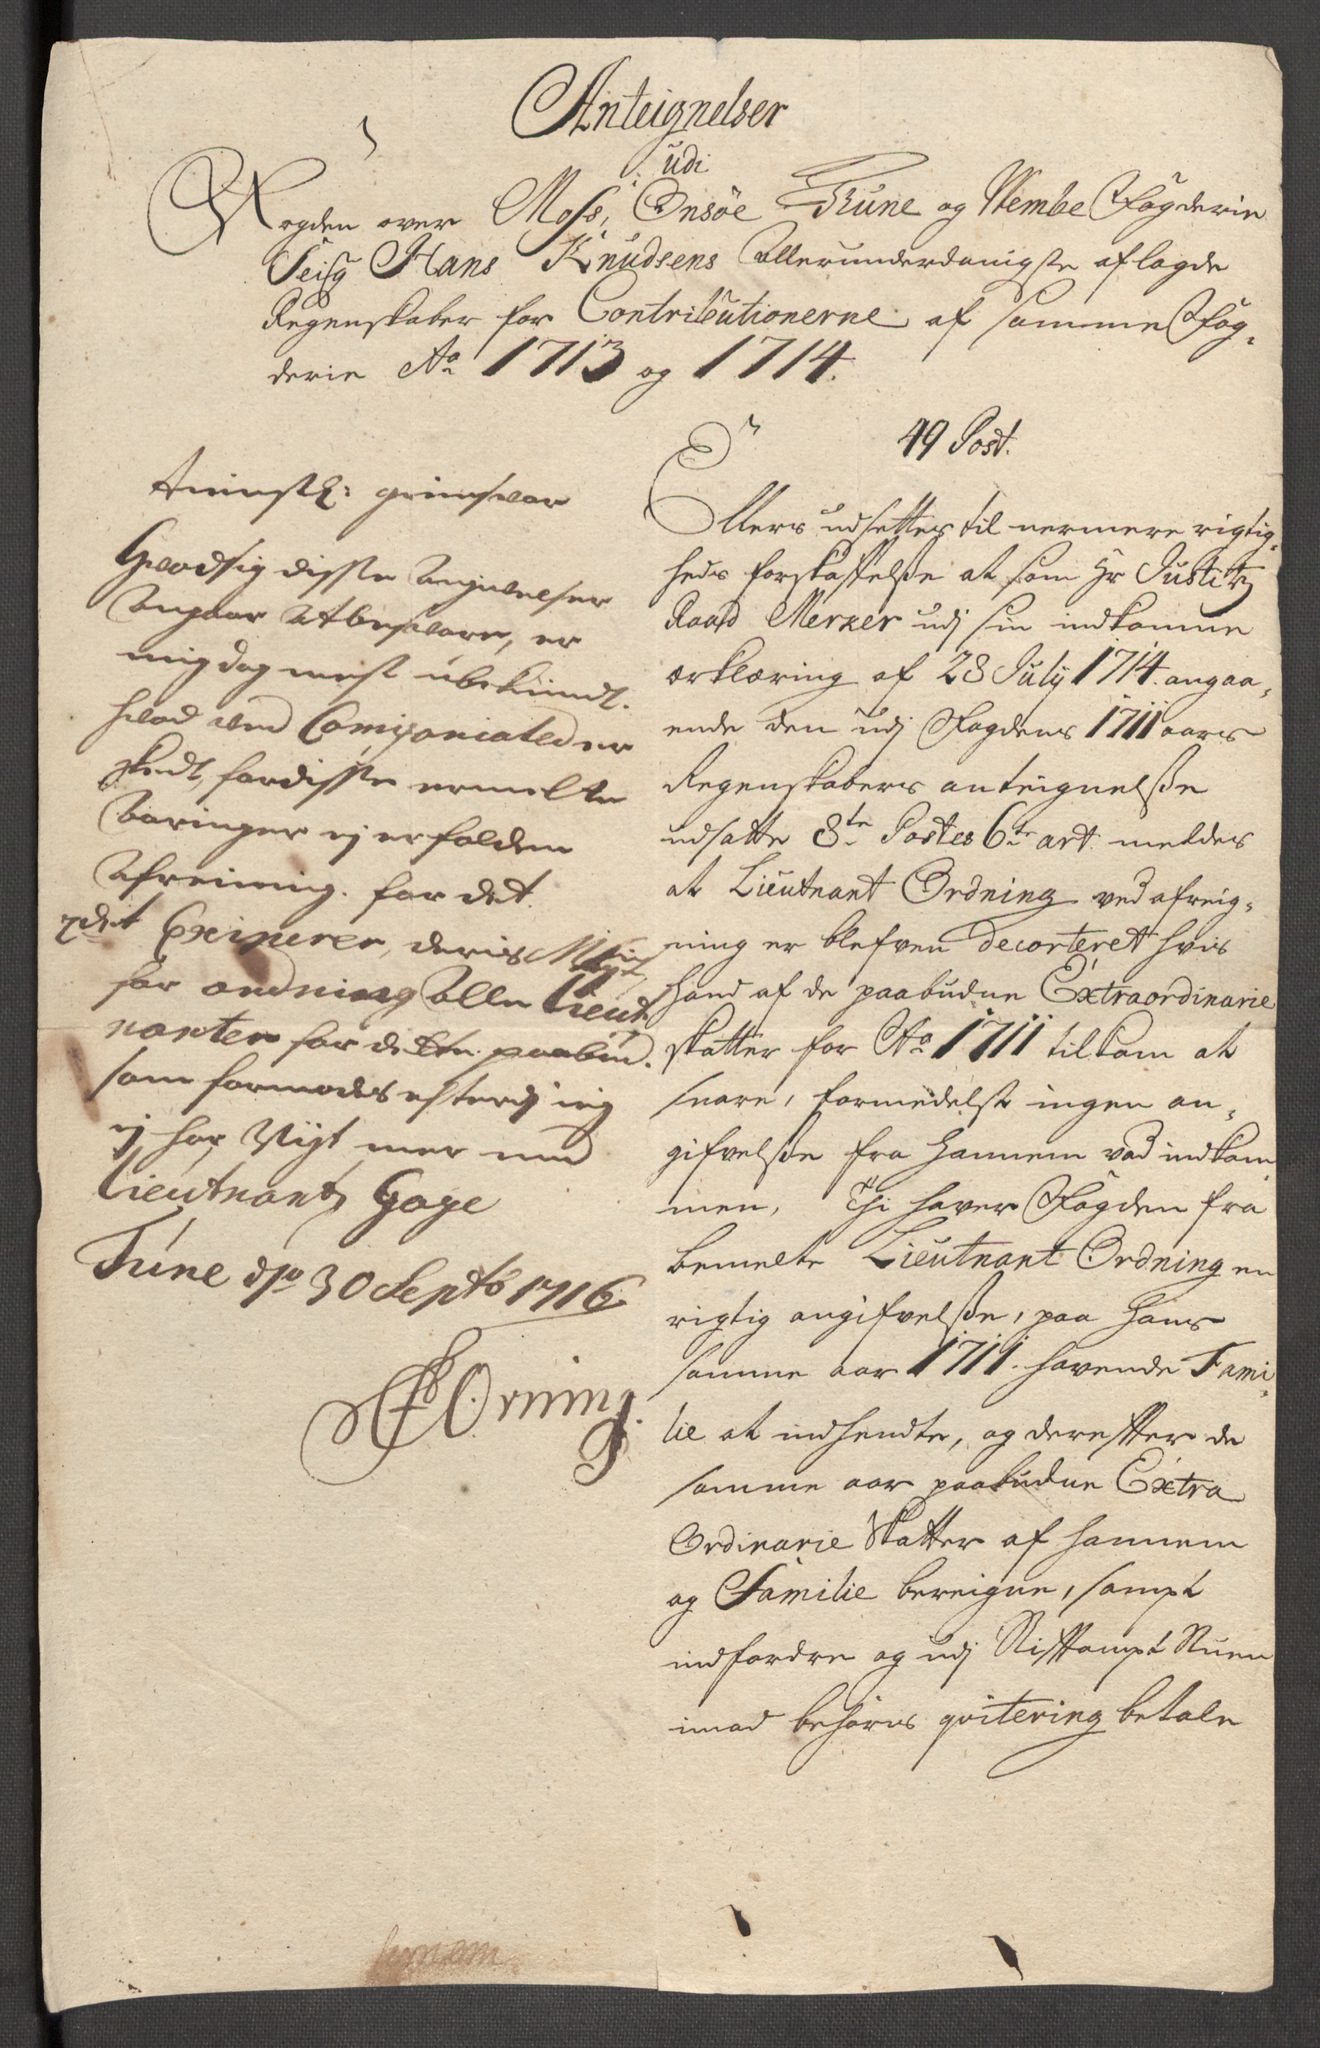 Anteignelser
udi
Fogden over Moss, Onsöe Thune og Wembe Fogderie
Seigr Hans Knudsens Allerunderdanigste aflagde
Regenskaber for Contributionerne af samme Fog-
derie Ao 1713 og 1714.
Hvadsig disse Angivelser
Angaar Atbesvare, er
mig dog mest übekiendt.
hvad ved Compagniated er
skedt, for disse ermelte
ej erfolden
Afreining. for det
det Eximerer, deris May
for ordning Alle Lieut
nanter for dette paabud.
som formodes efterdj jeg
ej har Nÿt mer end
Lieutnantz Gage
Tune dn 30 Septb 1716
Orning
49 Post.
Ellers udsettes til nermere rigtig-
heds forskaffelsse at som Hr Justitz
Raad Merker udj sin indkomne
erklæring af 28 July 1714. angaa-
ende den udj Fogdens 1711 aars
Regenskabers anteignelsse
udsatte 8te Postes 6te art: meldes
at Lieutnant Ordning ved afreig-
ning er blefven decorteret hvis
hand af de paabudne Extraordinarie
skatter for Ao 1711 tilkom at
svare, formedelst ingen an-
gifvelsse fra hannem var indkom
men, Thi haver Fogden fra
bemelte Lieutnant Ordning en
rigtig angifvelsse, paa hans
samme aar 1711. havende Fami-
lie at indhendte, og derefter de
samme aar paabudne Extra
Ordinarie Skatter af hannem
og Familie bereigne, sampt
indfordre og udj Stiftampt Stuen
imod behörig qvitering betale